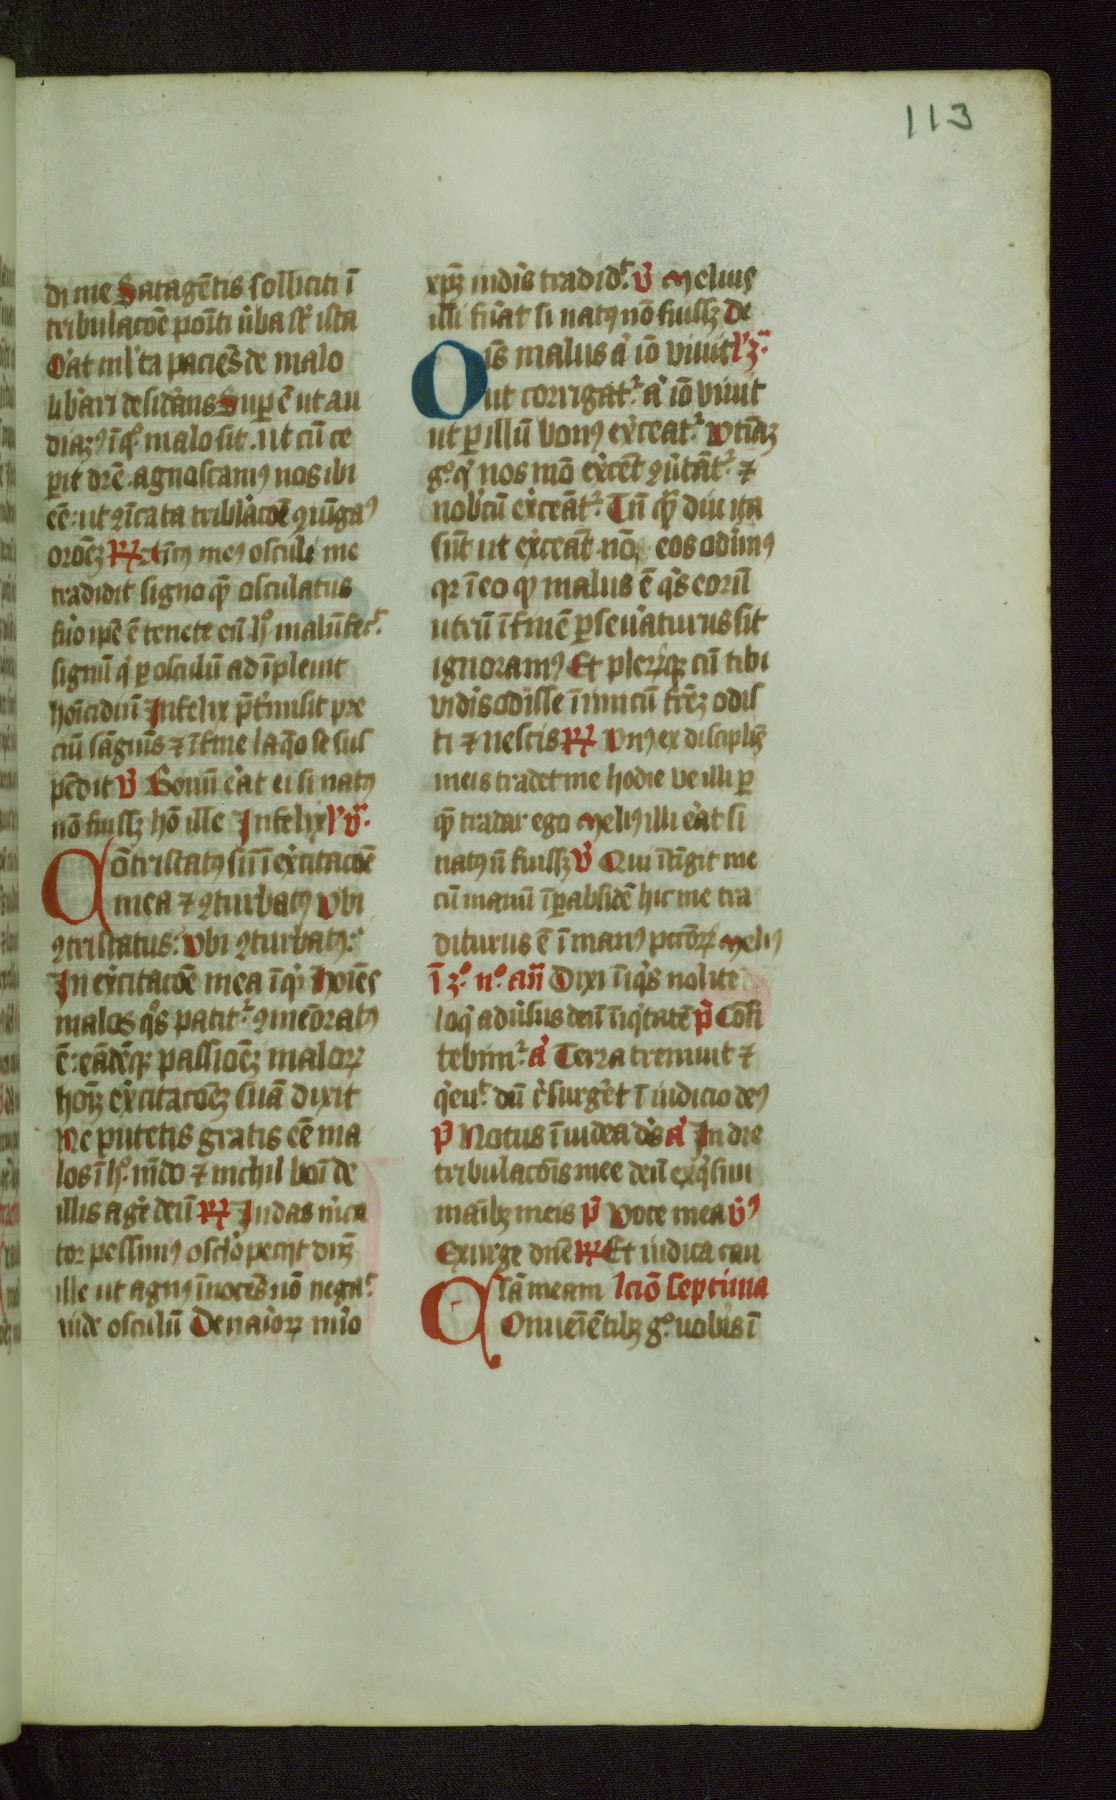 113
di me Satagētis solliciti ī
tribulacōe poīti v̄ba st̄ ista
Orat ml'ta paciēs de malo
lib'ari desid'ans Sup ē ut au
diaz ī q° malo sit . ut cū ce
perit dr̄e . agnoscamꝰ nos ibi
eē : ut ꝯīcata tribl'acōe ꝯiūgaꝰ
orōez ℟ Amīcꝰ meꝰ osculi me
tradidit signo quē osculatus
fuo ipē ē tenete eū h° malū fec̄
signū q' per osculū adīpleuit
homicidiū Infelix pretmisit pre
ciū sāgūis ⁊ ī fine laq̄o se sus
pēdit ℣ Bonū e'at ei si natꝰ
nō fuissꝫ hō ille Infelix
Cōtristatꝰ sū ī ex'citacōe
mea ⁊ ꝯturbatꝰ Vbi
ꝯtristatus : Vbi ꝯturbatꝰ :
In ex'citacōe mea īq' hoīes
malos q°s patit' ꝯmeōratꝰ
ē : eādēqꝫ passioēꝫ maloꝝ
hoīꝫ ex'citacōeꝫ suā dixit
Ne putetis gratis eē ma
los ī h° mūdo ⁊ nichil boī de
illis ag'e deū ℟ Iudas m'ca
tor pessimꝰ osc'lo pecijt dn̄ꝫ
ille ut agnꝰ īnocēs nō nega'
iude osculū Denarioꝝ nūo
xpꝫ iudeis tradid' ℣ Melius
illi fu'at si natꝰ nō fuissꝫ De
Oīs malus a' iō viuit
ut corrigat' a' iō viuit
ut per illū bonꝰ ex'ceat' Vtīaꝫ
g° q' nos mō ex'cēt ꝯu'tāt' ⁊
nob'cū ex'ceāt' Tn̄ q̄ diu ita
sūt ut ex'ceāt nō eos od'imꝰ
qr ī eo qd malus ē q's eorū
utrū ī finē perseu'aturus sit
ignoramꝰ Et pleruqꝫ cū tibi
vid'is odisse inimicū fr̄eꝫ odis
ti ⁊ nescis ℟ Vnꝰ ex discipl'ꝫ
meis tradet me hodie ve illi per
quē tradar ego Melꝰ illi e'at si
natꝰ n̄ fuissꝫ ℣ Qui ītīgit me
cū manū ī parabsidē hic me tra
diturus ē ī manꝰ pctōꝝ Melꝰ
ī 3° n° an̄ Dixi īiq's nolite
loq' adu'sus deū īiq'tatē p̄s Cōfi
tebim' a' Terra tremuit ⁊
q'eu' dū r'surg'et ī iudicio deꝰ
p̄s Notus ī iudea d's a' In die
tribulacōis mee deū exq'siui
maībꝫ meis p̄s Voce mea
Exurge dn̄e ℟ Et iudica cau
sā meam lc̄iō septima
Onueniētibꝫ g° uobis ī